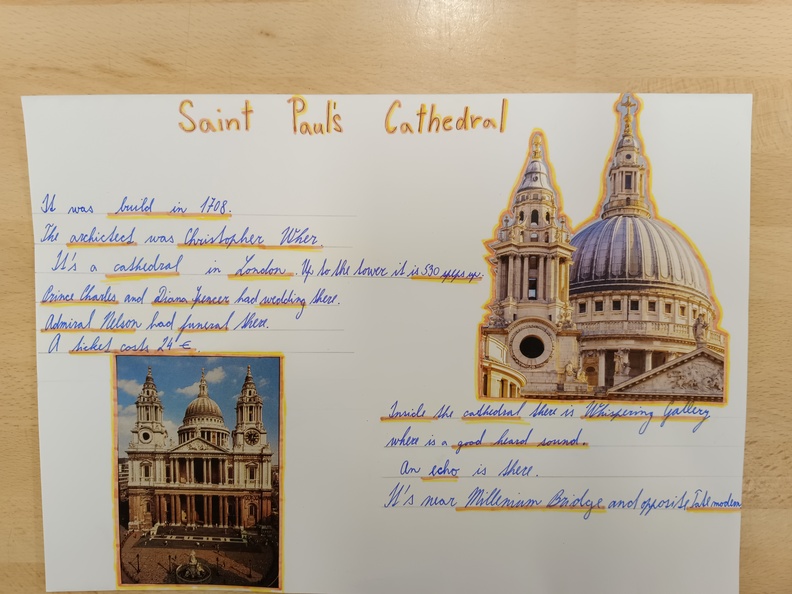 Saint Paul's Cathedral
It was build in 1708.
The architect was Christopher Wher.
It's a cathedral in London. Up to the tower it is 530
Prince Charles and Diana Spencer had wedding there.
Admiral Nelson had funeral there.
A ticket costs 24 €.
Inside the cathedral there is Whispering Gallery
where is a good heard sound.
An echo is there.
It's near Millenium Bridge and opposite Tate modern